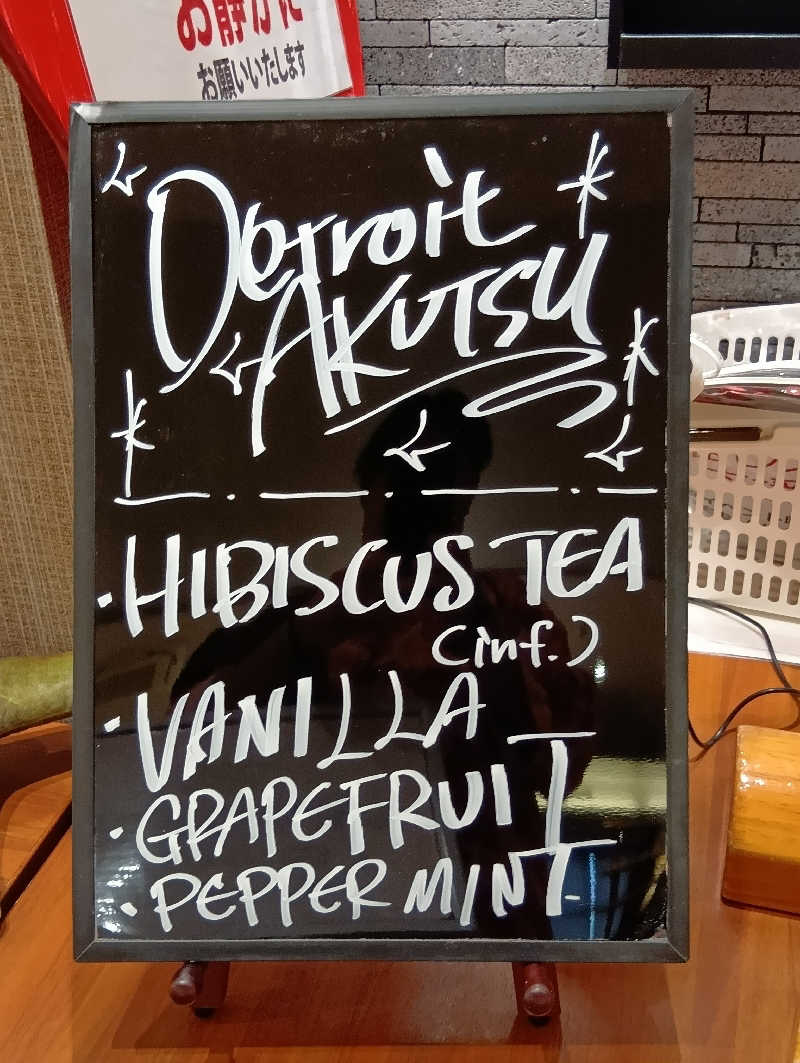 お静かに
お願いいたします
Detroit
AKUTSU
・HIBISCUS TEA
(inf.)
・VANILLA
・GRAPEFRUIT
・PEPPERMINT